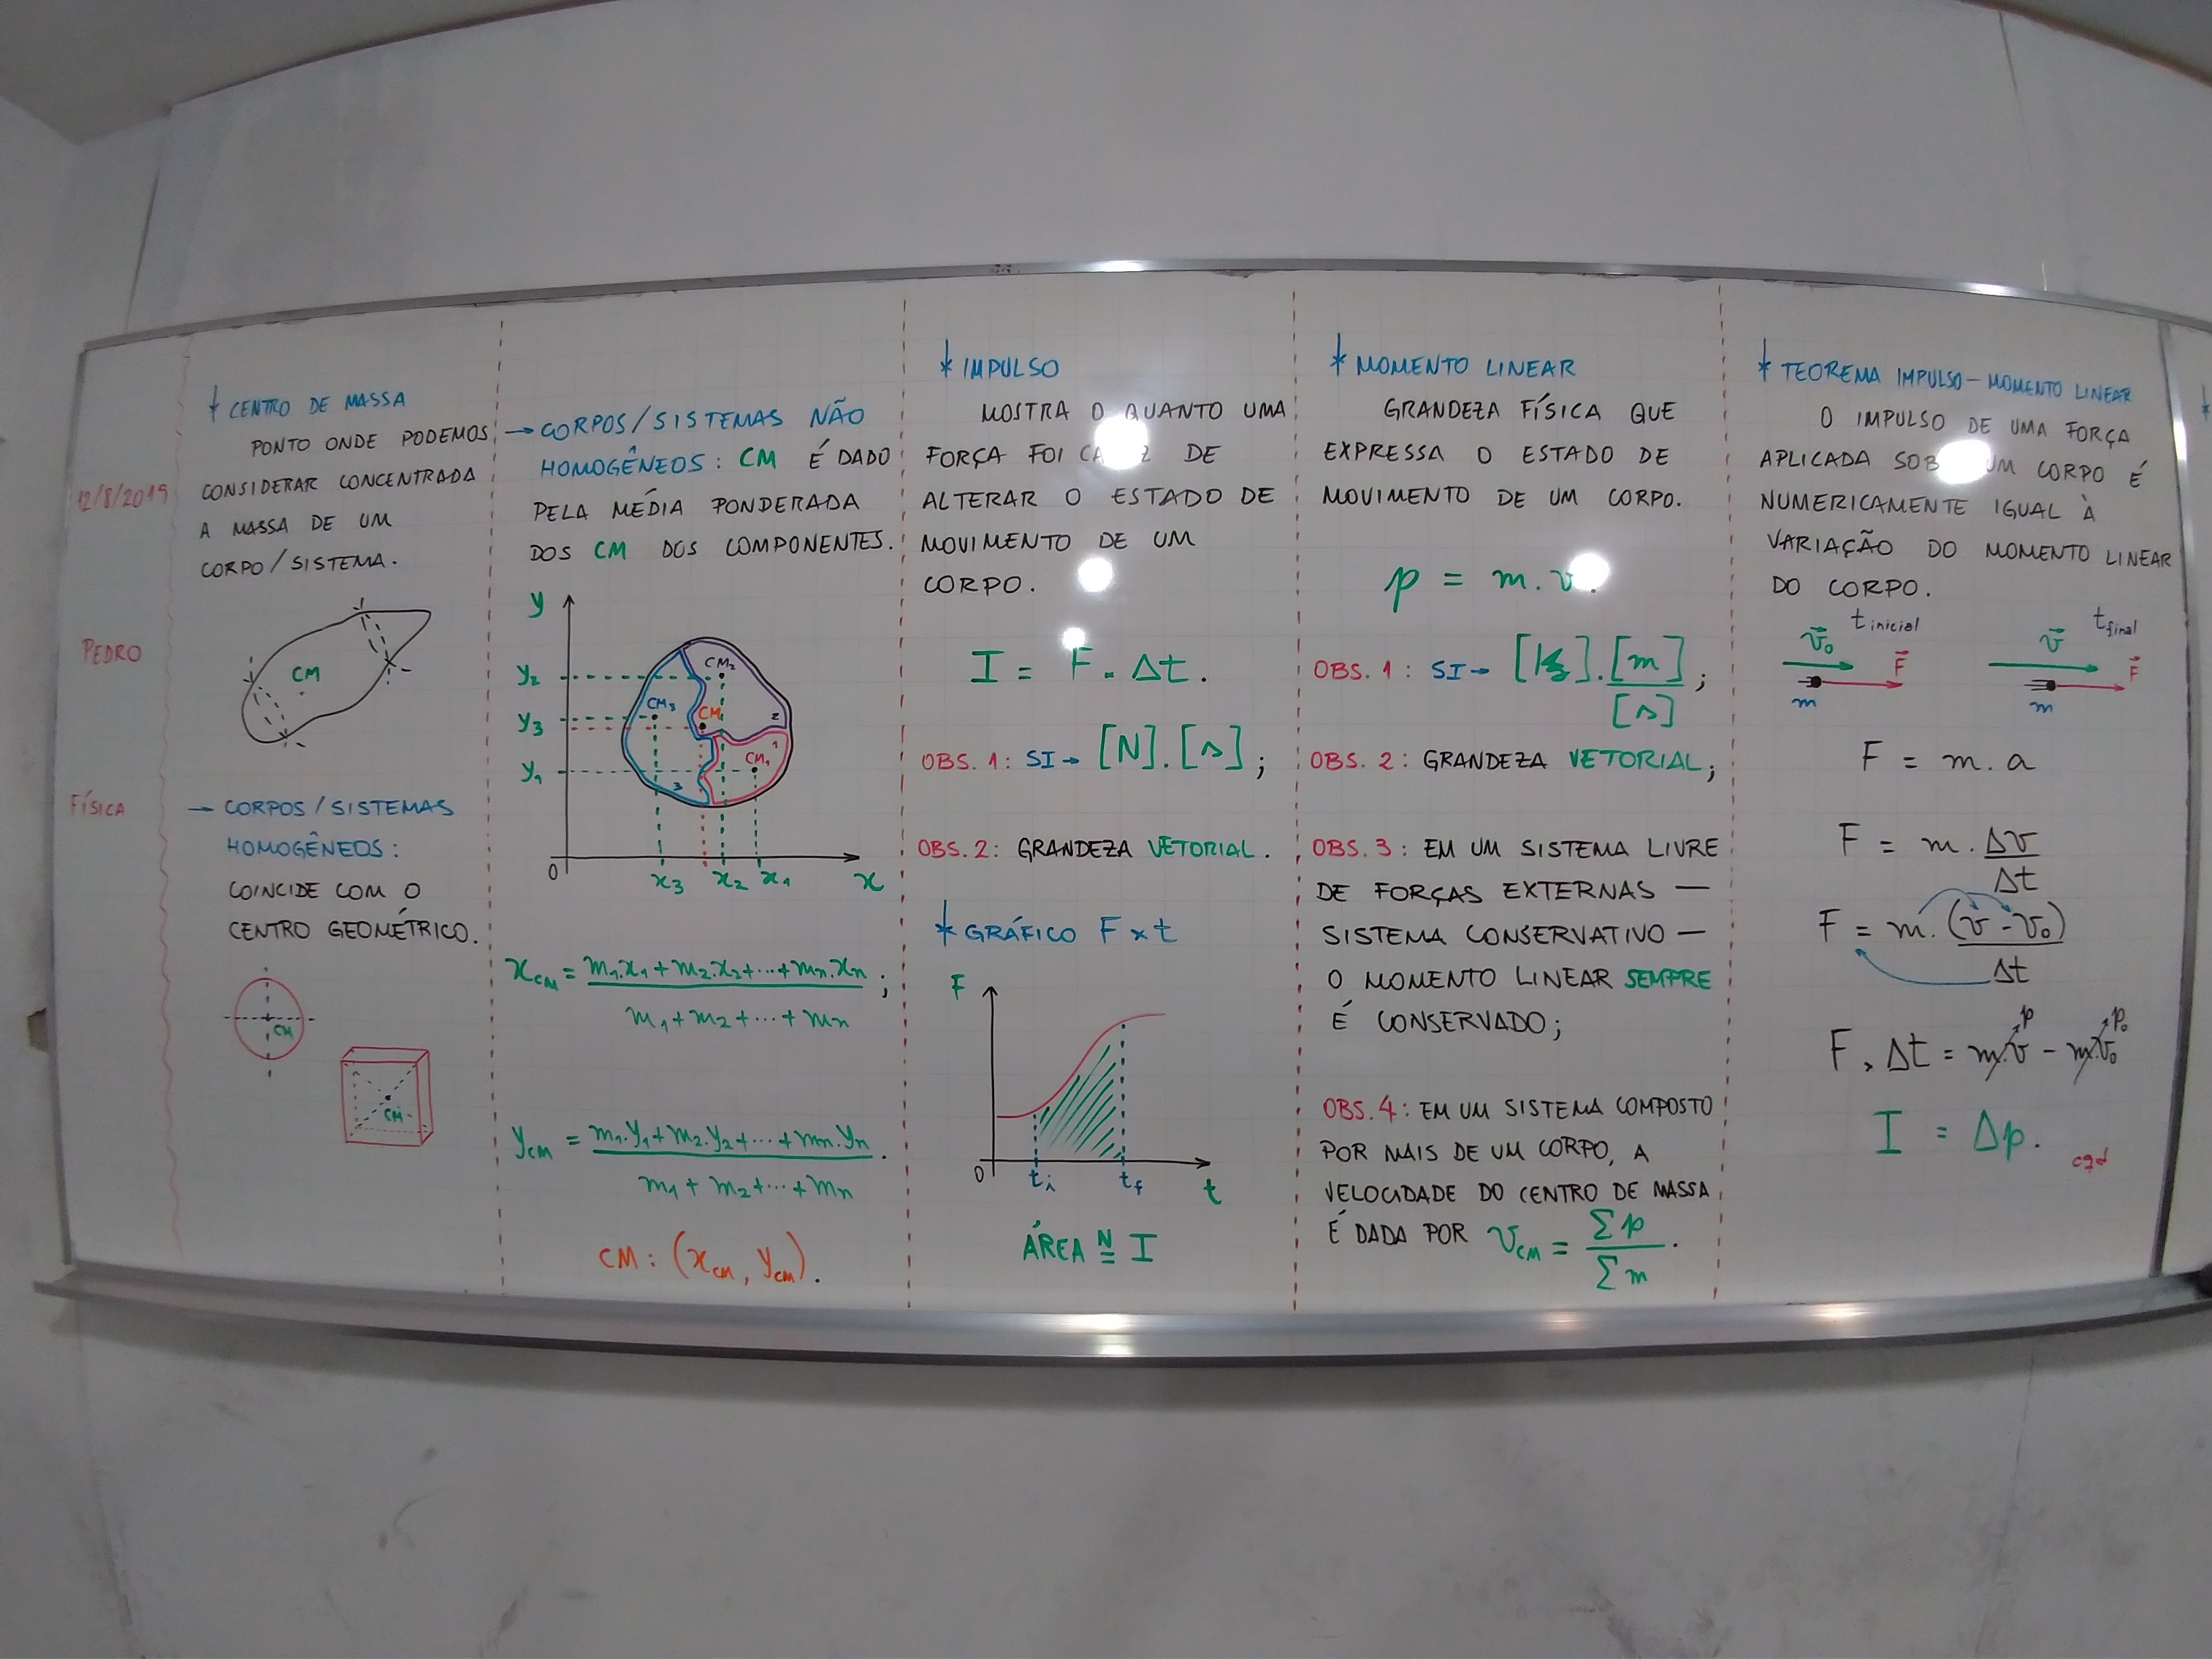 12/8/2019
PEDRO
FÍSICA
* CENTRO DE MASSA
PONTO ONDE PODEMOS
CONSIDERAR CONCENTRADA
A MASSA DE UM
CORPO/SISTEMA.
CM
→ CORPOS/SISTEMAS
HOMOGÊNEOS:
COINCIDE COM O
CENTRO GEOMÉTRICO.
CM
CM
→ CORPOS/SISTEMAS NÃO
HOMOGÊNEOS: CM É DADO
PELA MÉDIA PONDERADA
DOS CM DOS COMPONENTES.
y
y₂
y₃
y₁
CM₂
CM₃
CM
CM₁
2
1
3
0
x₃ x₂ x₁ x
x_CM = m₁.x₁ + m₂.x₂ + ... + mn.xn ;
m₁ + m₂ + ... + mn
y_CM = m₁.y₁ + m₂.y₂ + ... + mn.yn .
m₁ + m₂ + ... + mn
CM: (x_CM, y_CM).
* IMPULSO
MOSTRA O QUANTO UMA
FORÇA FOI DE
ALTERAR O ESTADO DE
MOVIMENTO DE UM
CORPO.
I = F . Δt.
OBS. 1: SI → [N].[s];
OBS. 2: GRANDEZA VETORIAL.
* GRÁFICO F x t
F
0
ti tf t
ÁREA N= I
* MOMENTO LINEAR
GRANDEZA FÍSICA QUE
EXPRESSA O ESTADO DE
MOVIMENTO DE UM CORPO.
p = m.v.
OBS. 1: SI → [kg].[m] ;
[s]
OBS. 2: GRANDEZA VETORIAL;
OBS. 3: EM UM SISTEMA LIVRE
DE FORÇAS EXTERNAS —
SISTEMA CONSERVATIVO —
O MOMENTO LINEAR SEMPRE
É CONSERVADO;
OBS. 4: EM UM SISTEMA COMPOSTO
POR MAIS DE UM CORPO, A
VELOCIDADE DO CENTRO DE MASSA
É DADA POR v_CM = Σp .
Σm
* TEOREMA IMPULSO - MOMENTO LINEAR
O IMPULSO DE UMA FORÇA
APLICADA UM CORPO É
NUMERICAMENTE IGUAL À
VARIAÇÃO DO MOMENTO LINEAR
DO CORPO.
t inicial
v⃗₀
F⃗
m
t final
v⃗
F⃗
m
F = m.a
F = m.Δv
Δt
F = m.(v - v₀)
Δt
F.Δt = m.v - m.v₀
p p₀
I = Δp.
cqd
*